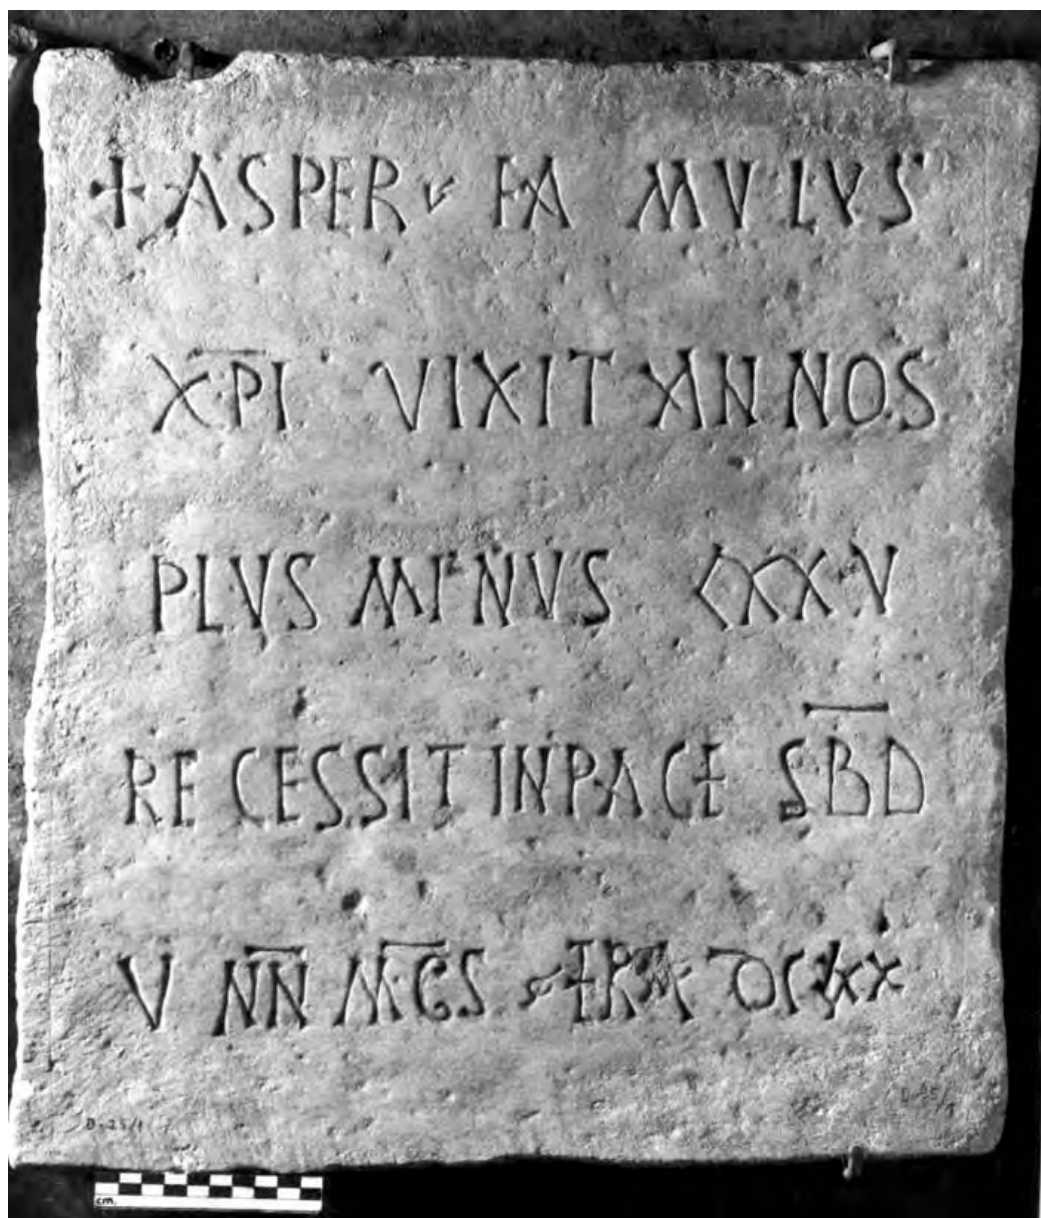 + ASPER FA MULUS
XPI VIXIT ANNOS
PLVS MINUS LXXXV
RECESSIT IN PACE S̅B̅D
V N̅N̅ M̅C̅S ERA
D-25/1
cm.